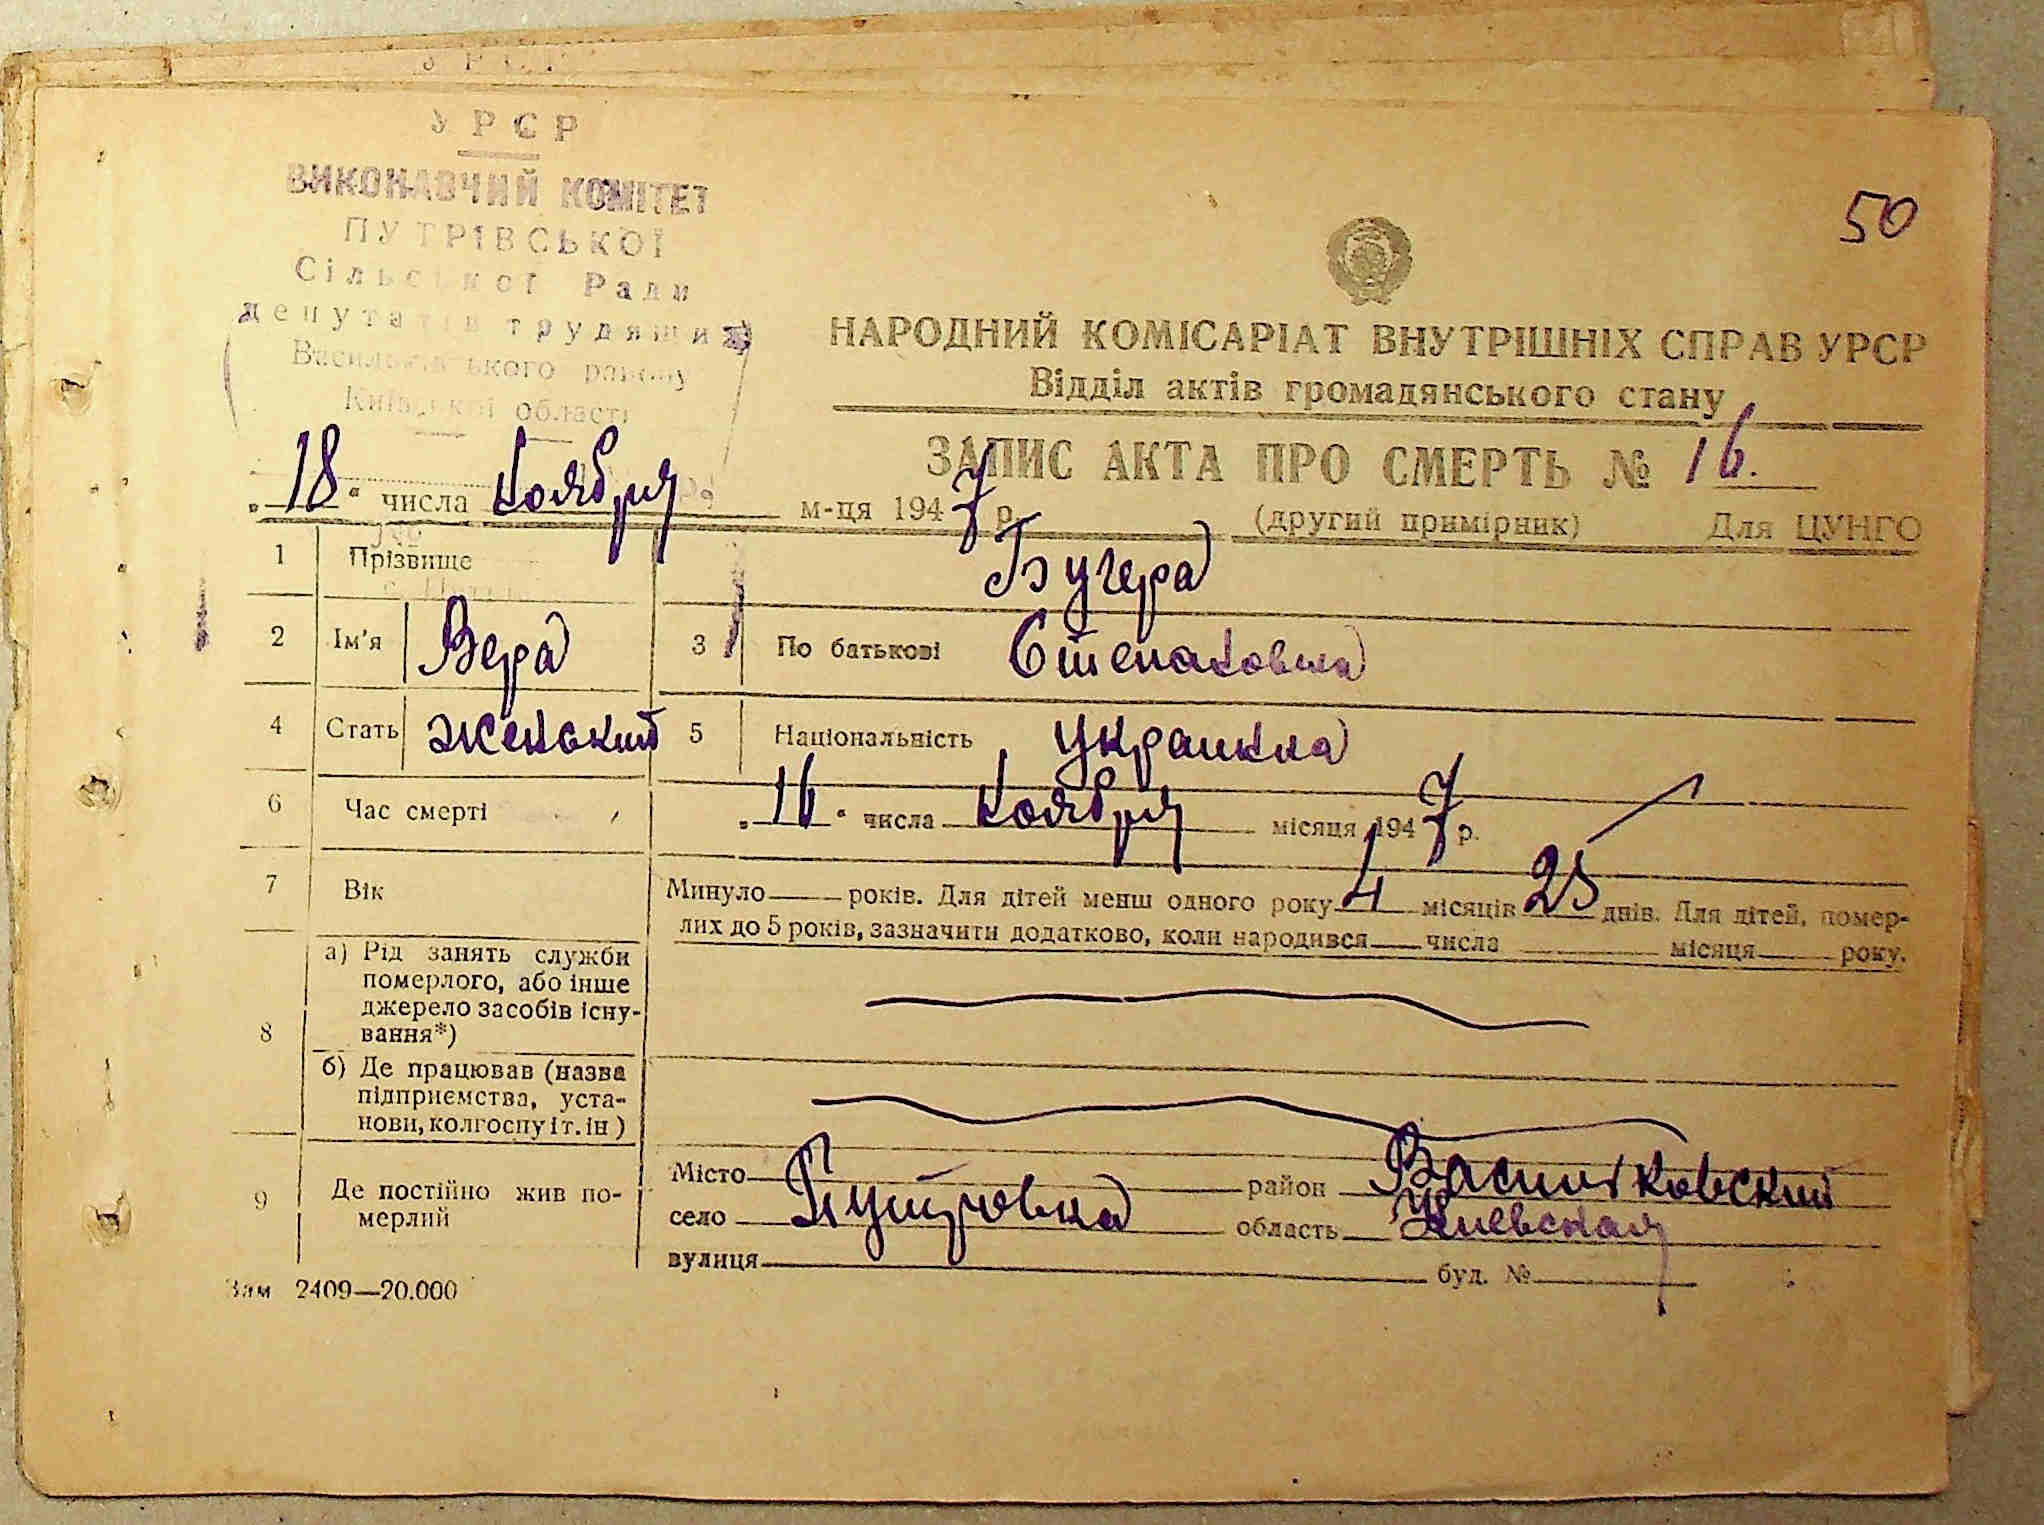 УРСР
ВИКОНАВЧИЙ КОМІТЕТ
ПУТРІВСЬКОЇ
Сільської Ради
депутатів трудящих
Васильківського району
Київської області
50
НАРОДНИЙ КОМІСАРІАТ ВНУТРІШНІХ СПРАВ УРСР
Відділ актів громадянського стану
ЗАПИС АКТА ПРО СМЕРТЬ № 16.
„18" числа Ноября м-ця 1947 р. (другий примірник) Для ЦУНГО
1 Прізвище Бугера
2 Ім'я Вера 3 По батькові Степановна
4 Стать женский 5 Національність украинка
6 Час смерті „16" числа Ноября місяця 1947 р.
7 Вік Минуло — років. Для дітей менш одного року 4 місяців 25 днів. Для дітей, помер-
лих до 5 років, зазначити додатково, коли народився числа місяця року.
8 а) Рід занять служби
померлого, або інше
джерело засобів існу-
вання*)
б) Де працював (назва
підприємства, уста-
нови, колгоспу і т. ін)
9 Де постійно жив по-
мерлий
Місто район Васильковский
село Путровка область Киевская
вулиця буд. №
Зам 2409—20.000